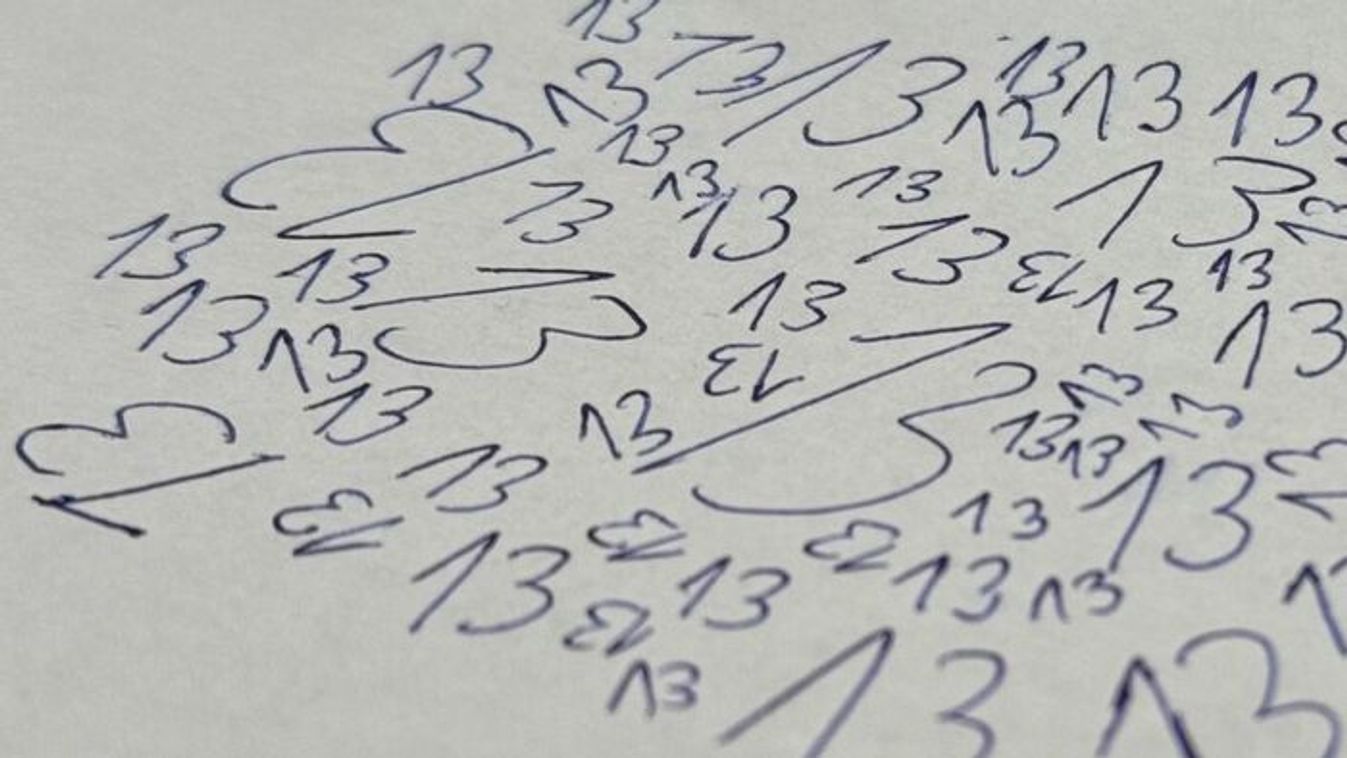 13
13 13 13 13 13 13 13
13 13 13
13 13 13 13 13 13
13 13 13 13 13
13 13 13 13
13 13 13 13 13
13 13 13 13 13
13 13 13 13 13
13 13 13 13 13
13 13 13 13
13
13 13 13